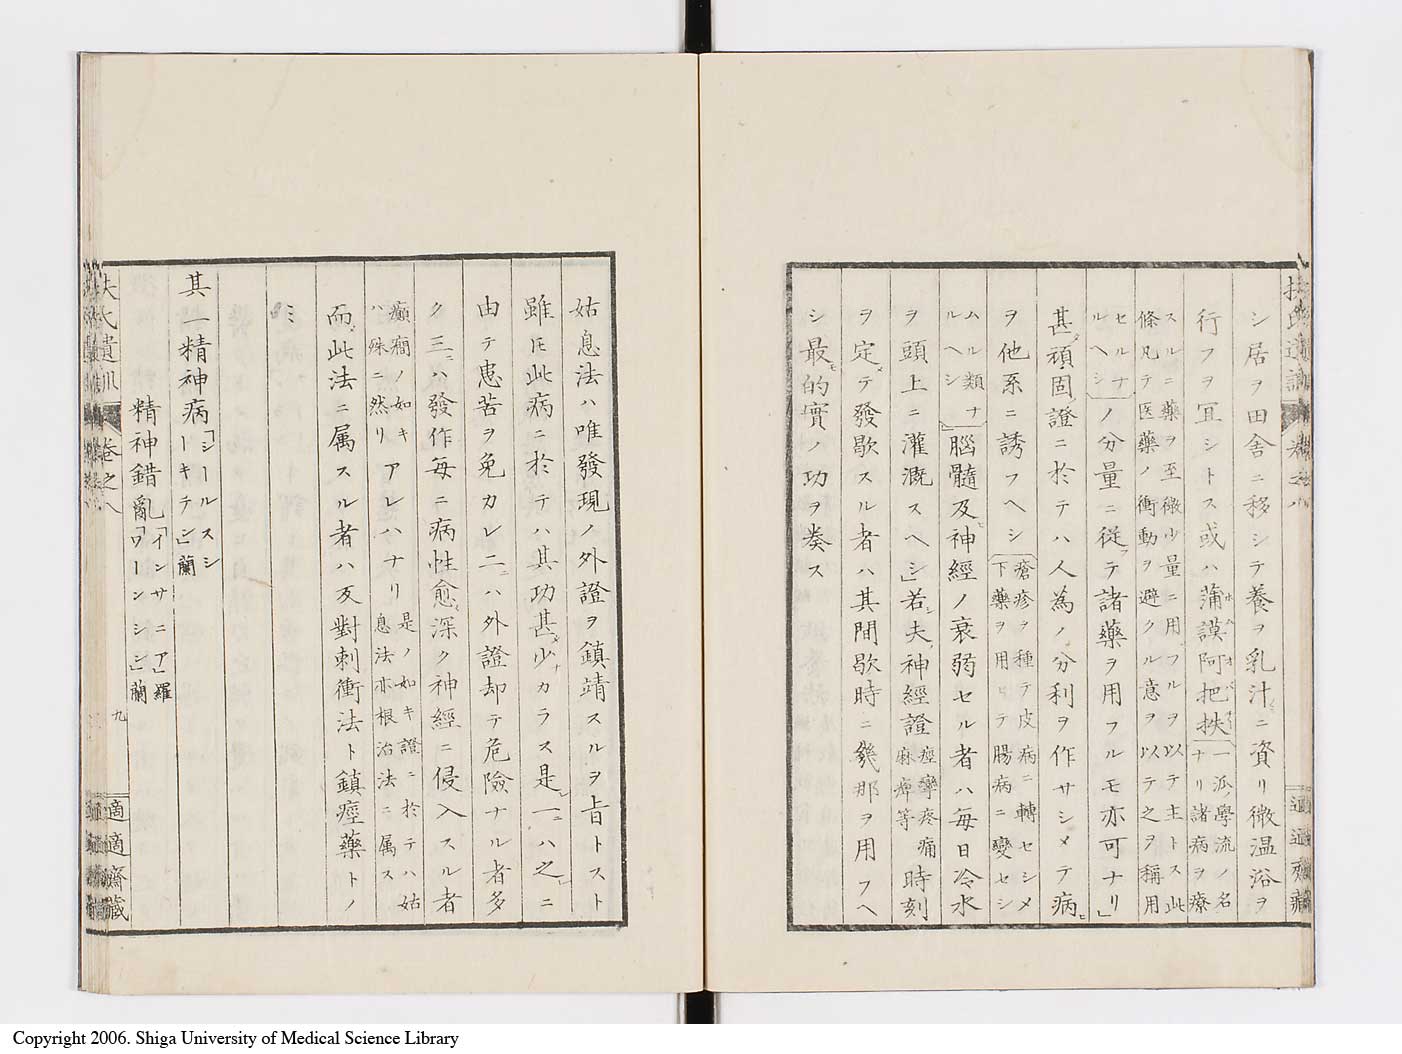 シ居ヲ田舎ニ移シテ養ヲ乳汁ニ資リ微温浴ヲ
行フヲ冝シトス或ハ蒲謨阿把挾
一派ノ學流ノ名
ナリ諸病ヲ療
スルニ藥ヲ至微少量ニ用フルヲ以テ主トス此
條凡テ医藥ノ衝動ヲ避クル意ヲ以テ之ヲ稱用
セルナ
ルヘシ
ノ分量ニ従テ諸藥ヲ用フルモ亦可ナリ」
甚頑固證ニ於テハ人為ノ分利ヲ作サシメテ病
ヲ他系ニ誘フヘシ
瘡疹ヲ種テ皮病ニ轉セシメ
下藥ヲ用ヰテ腸病ニ變セシ
ムル類ナ
ルヘシ
腦髓及神經ノ衰弱セル者ハ毎日冷水
ヲ頭上ニ灌漑スヘシ」若夫神經證
痙攣疼痛
麻痺等
時刻
ヲ定テ發歇スル者ハ其間歇時ニ幾那ヲ用フヘ
シ最的實ノ功ヲ奏ス
姑息法ハ唯發現ノ外證ヲ鎮靖スルヲ旨トスト
雖𪜈此病ニ於テハ其功甚少カラス是一ハ之ニ
由テ患苦ヲ免カレ二ハ外證却テ危險ナル者多
ク三ハ發作毎ニ病性愈深ク神經ニ侵入スル者
癲癇ノ如キ
ハ殊ニ然リ
アレハナリ
是ノ如キ證ニ於テハ姑
息法亦根治法ニ属ス
而此法ニ属スル者ハ反對刺衝法ト鎮痙藥ト
ノミ
其一精神病
「シールスシ
ーキテン」蘭
精神錯亂
「インサニア」羅
「ワーンシン」蘭
扶氏遺訓
卷之八
九
適適齋藏
Copyright 2006. Shiga University of Medical Science Library